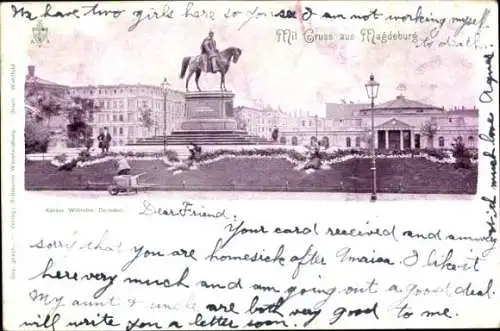 We have two girls here so you see I am not working myself
to death.
Mit Gruss aus Magdeburg.
Kaiser Wilhelm Denkmal
Dear Friend;
Your card received and am very
sorry that you are homesick after I like it
here very much and am going out a good deal.
My aunt & uncle are both very good to me.
will write you a letter soon.
with much love Agnes